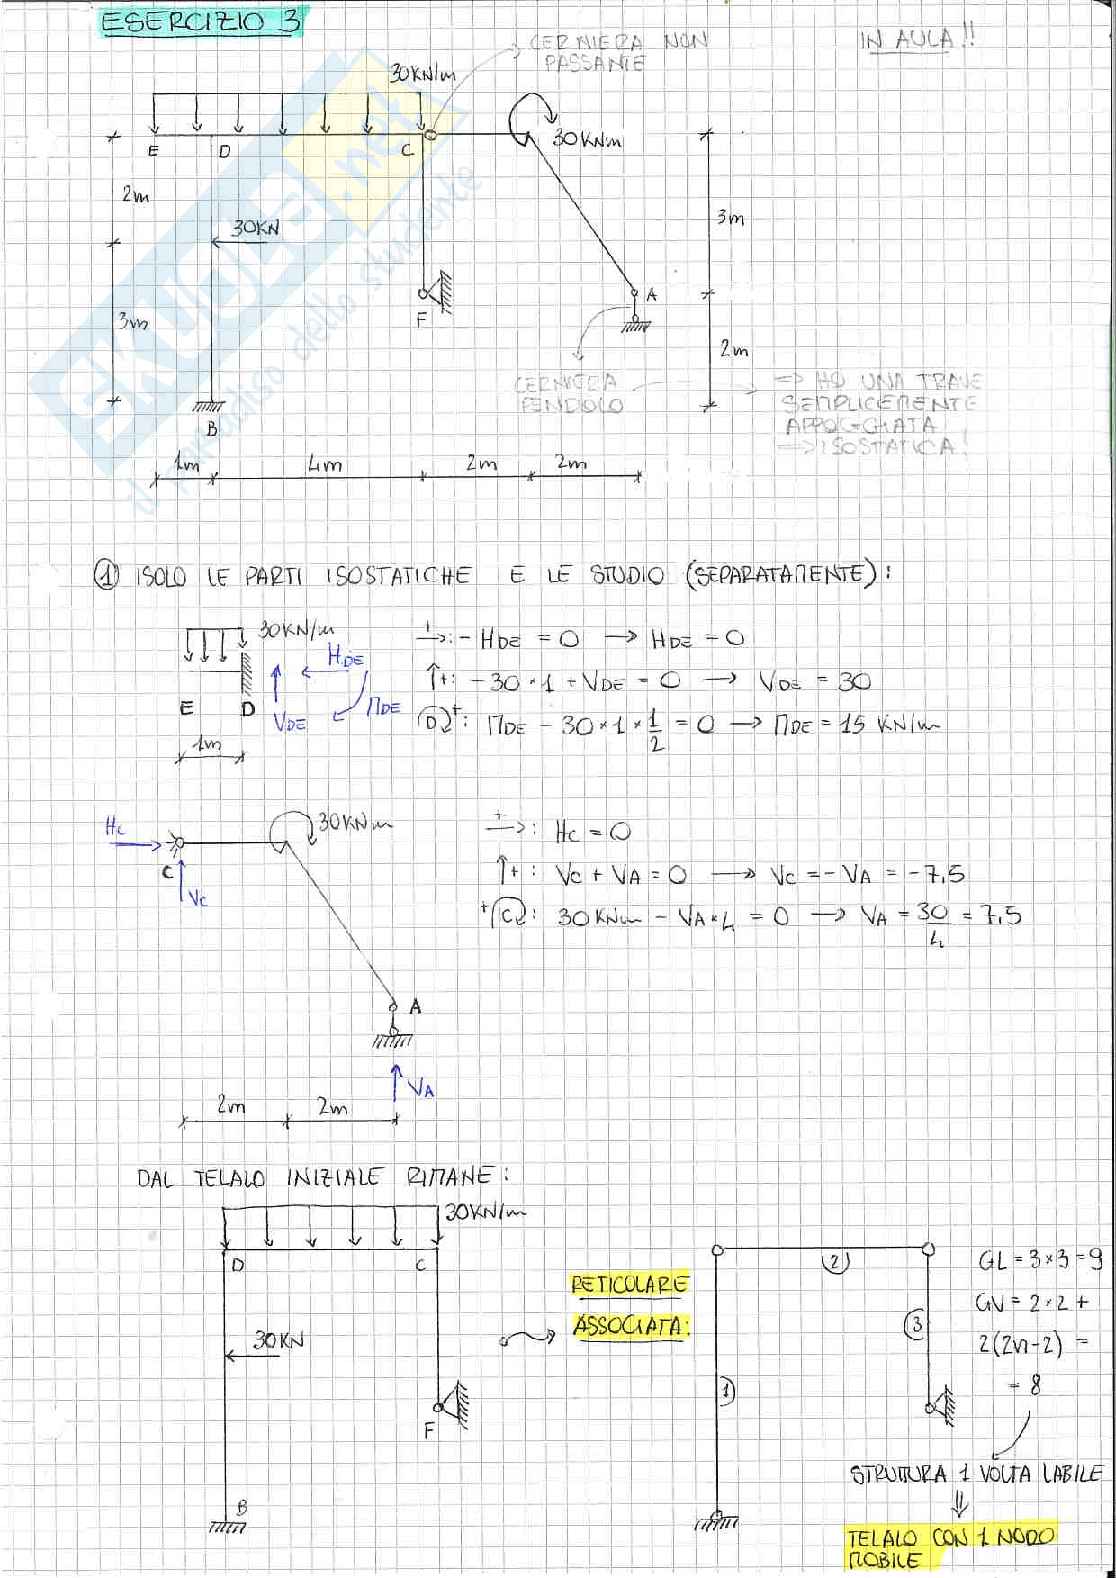 ESERCIZIO 3
CERNIERA NON
PASSANTE
IN AULA!!
30KN/m
E
D
C
30KNm
2m
30KN
3m
3m
F
A
2m
CERNIERA
PENDOLO
=> HO UNA TRAVE
SEMPLICEMENTE
APPOGGIATA
-> ISOSTATICA!
B
1m
4m
2m
2m
1 ISOLO LE PARTI ISOSTATICHE E LE STUDIO (SEPARATAMENTE):
30KN/m
HDE
E
D
VDE
MDE
1m
+→: - HDE = 0 → HDE = 0
↑+: -30·1 + VDE = 0 → VDE = 30
D+: MDE - 30·1·1/2 = 0 → MDE = 15 KN/m
HC
C
VC
30KNm
A
VA
2m
2m
+→: HC = 0
↑+: VC + VA = 0 → VC = -VA = -7,5
+C: 30KNm - VA·4 = 0 → VA = 30/4 = 7,5
DAL TELAIO INIZIALE RIMANE:
30KN/m
D
C
30KN
F
B
RETICOLARE
ASSOCIATA:
1
2
3
GL = 3×3 = 9
GV = 2×2 +
2(2n-2) =
= 8
STRUTTURA 1 VOLTA LABILE
⇓
TELAIO CON 1 NODO
MOBILE
SKUOLA.net
il paradiso dello studente